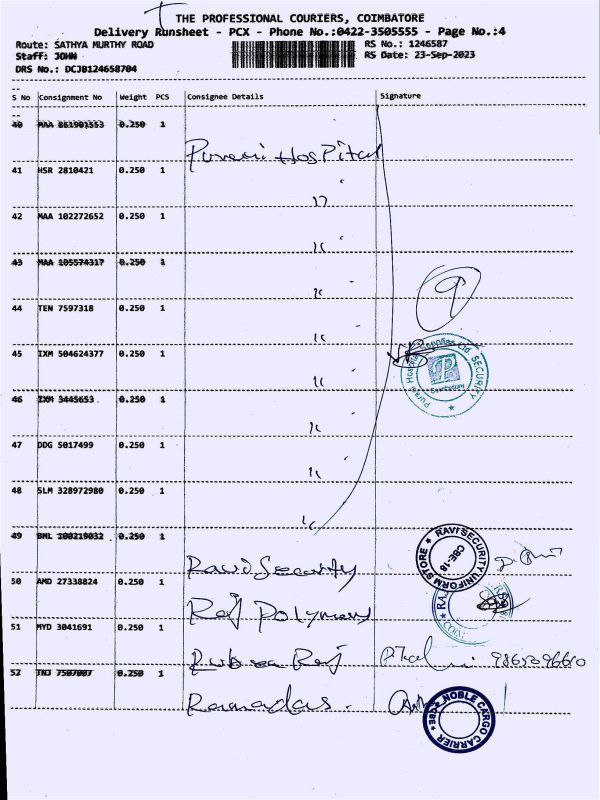 THE PROFESSIONAL COURIERS, COIMBATORE
Delivery Runsheet - PCX - Phone No.:0422-3505555 - Page No.:4
Route: SATHYA MURTHY ROAD RS No.: 1246587
Staff: JOHN RS Date: 23-Sep-2023
DRS No.: DCJB124658704
S No Consignment No Weight PCS Consignee Details Signature
40 MAA 861901553 0.250 1
Hospital
41 HSR 2810421 0.250 1
"
42 MAA 102272652 0.250 1
"
43 MAA 105574317 0.250 1
"
44 TEN 7597318 0.250 1
"
9
45 IXM 504624377 0.250 1
"
Supplies Ltd. SECURITY
Coimbatore
46 IXM 3445653 0.250 1
"
47 DDG 5017499 0.250 1
"
48 SLM 328972980 0.250 1
"
49 BML 100219032 0.250 1
Ravi Security
RAVI SECURITY UNIFORM STORE
CBE-18
50 AMD 27338824 0.250 1
Raj Polymers
51 MYD 3041691 0.250 1
Raj
52 TNJ 7507007 0.250 1
Ramadas.
NOBLE CARGO CARRIER
CBE